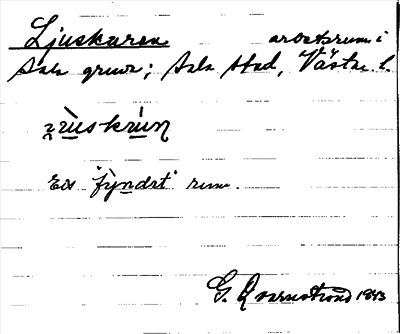 Ljuskuren arbetsrum i
Sala gruva; Sala stad, Västm. l.
Ett "fyndrt" rum.
G. Qvarnström 1943